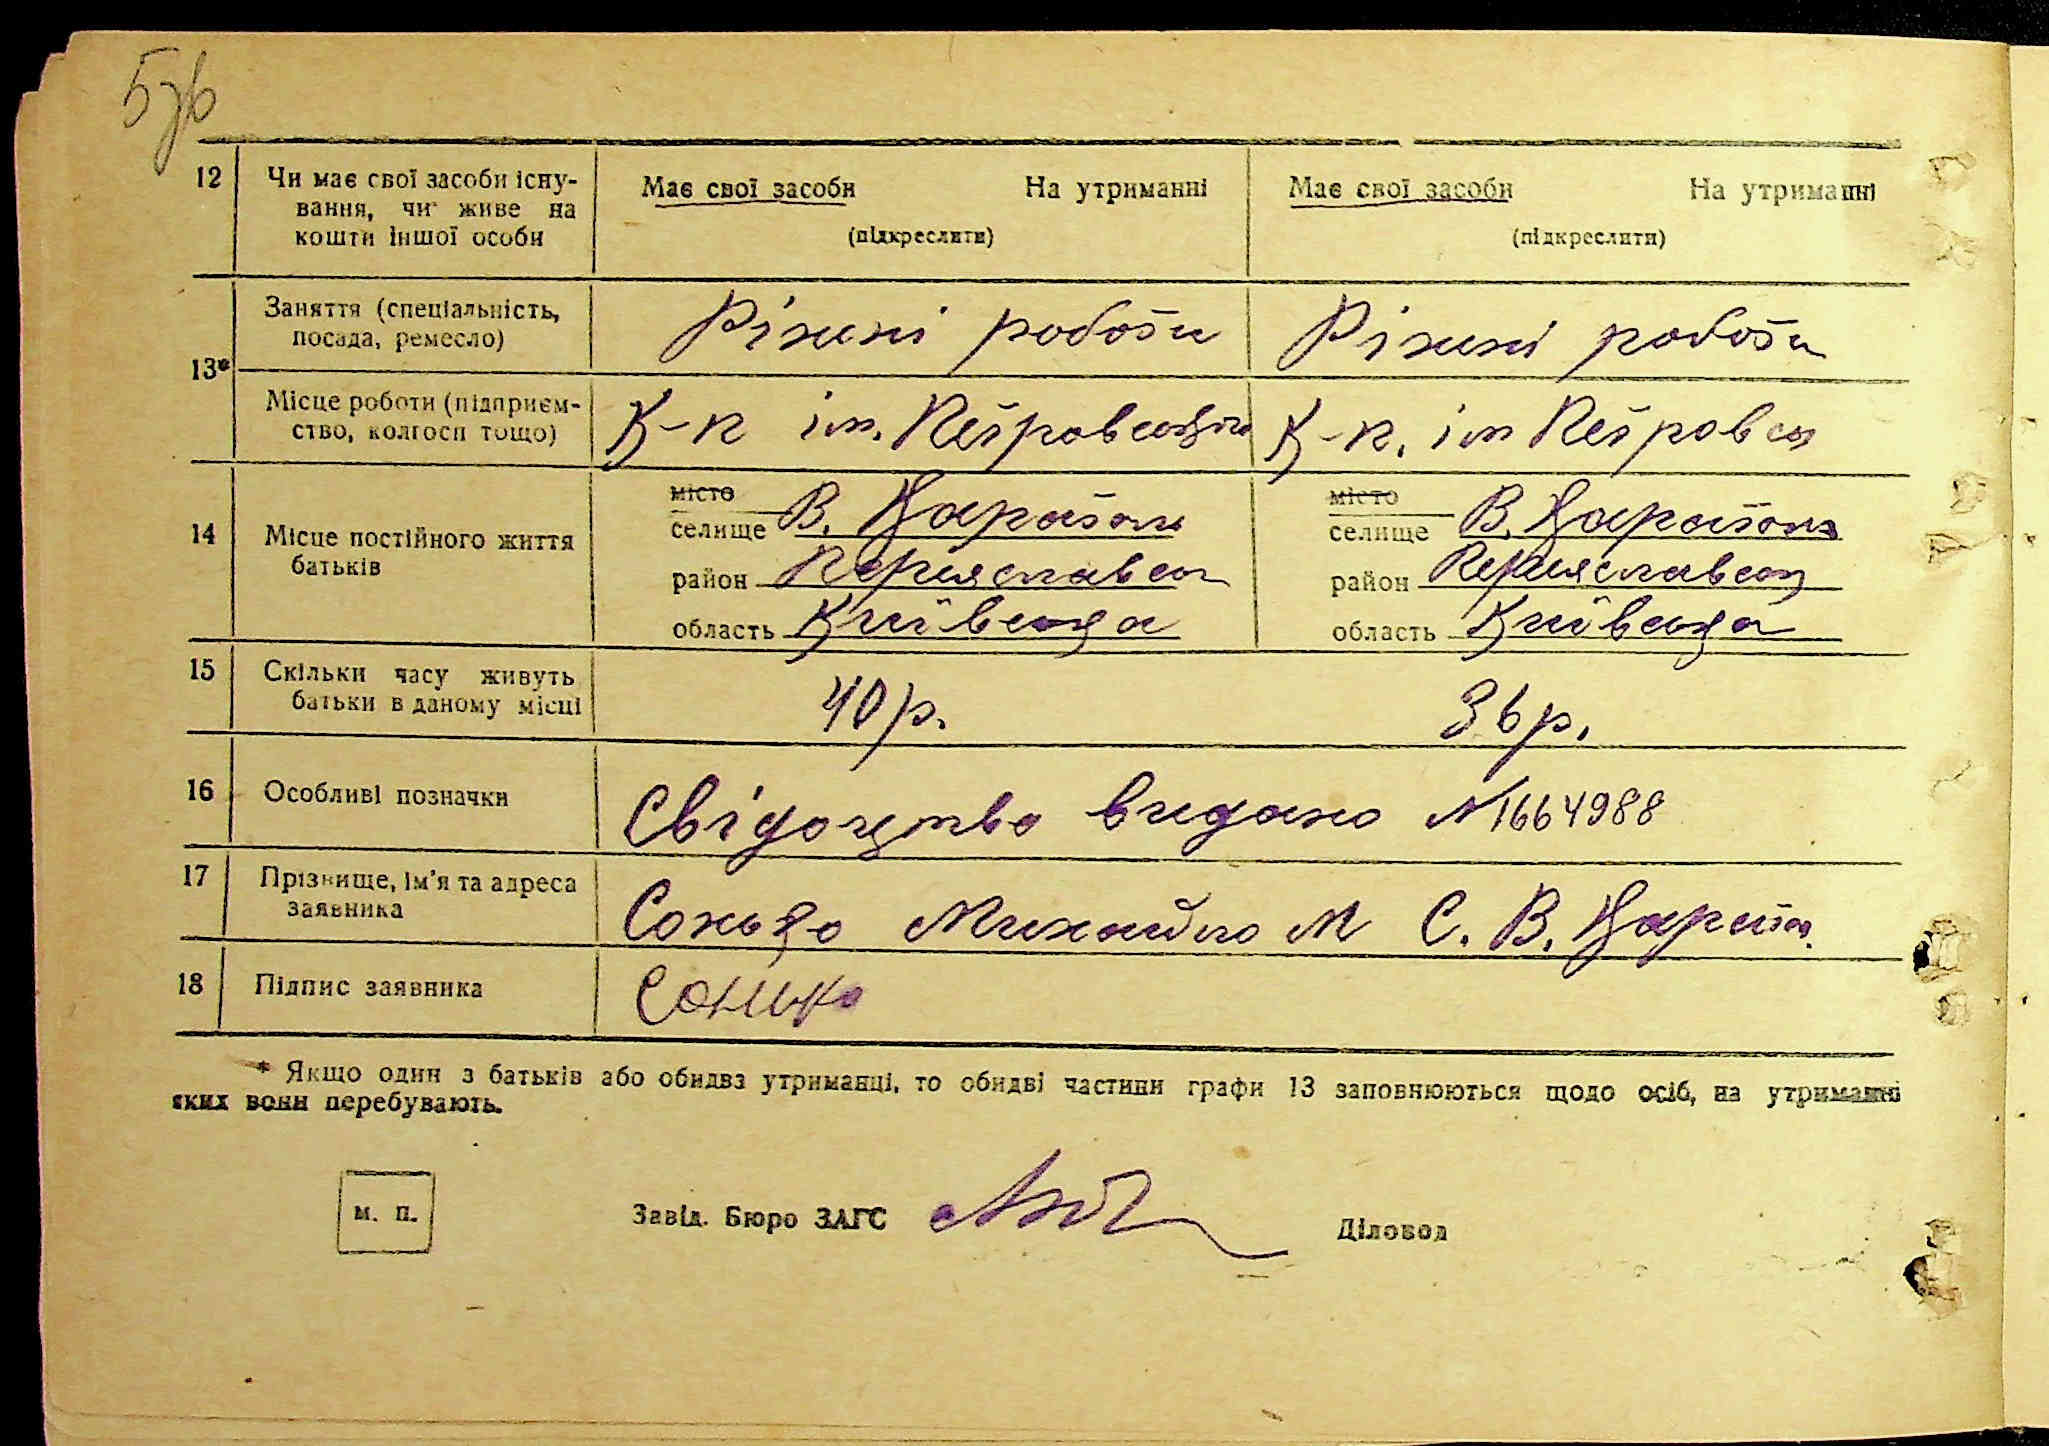 5зв
12 Чи має свої засоби існу- Має свої засоби На утриманні Має свої засоби На утриманні
вання, чи живе на
кошти іншої особи (підкреслити) (підкреслити)
Заняття (спеціальність, Різнині роботи Різнині роботи
посада, ремесло)
13*
Місце роботи (підприєм- К-п ім. Петровського К-п. ім Петровсь
ство, колгосп тощо)
місто місто
14 Місце постійного життя селище В. Каратоль селище В. Каратоль
батьків район Переяславськ район Переяславськ
область Київська область Київська
15 Скільки часу живуть 40 р. 36 р.
батьки в даному місці
16 Особливі позначки Свідоцтво видано №1664988
17 Прізвище, ім'я та адреса Сонько Михайло М С. В. Карат.
заявника
18 Підпис заявника Сонько
* Якщо один з батьків або обидва утриманці, то обидві частини графи 13 заповнюються щодо осіб, на утриманні
яких вони перебувають.
м. п. Завід. Бюро ЗАГС Діловод